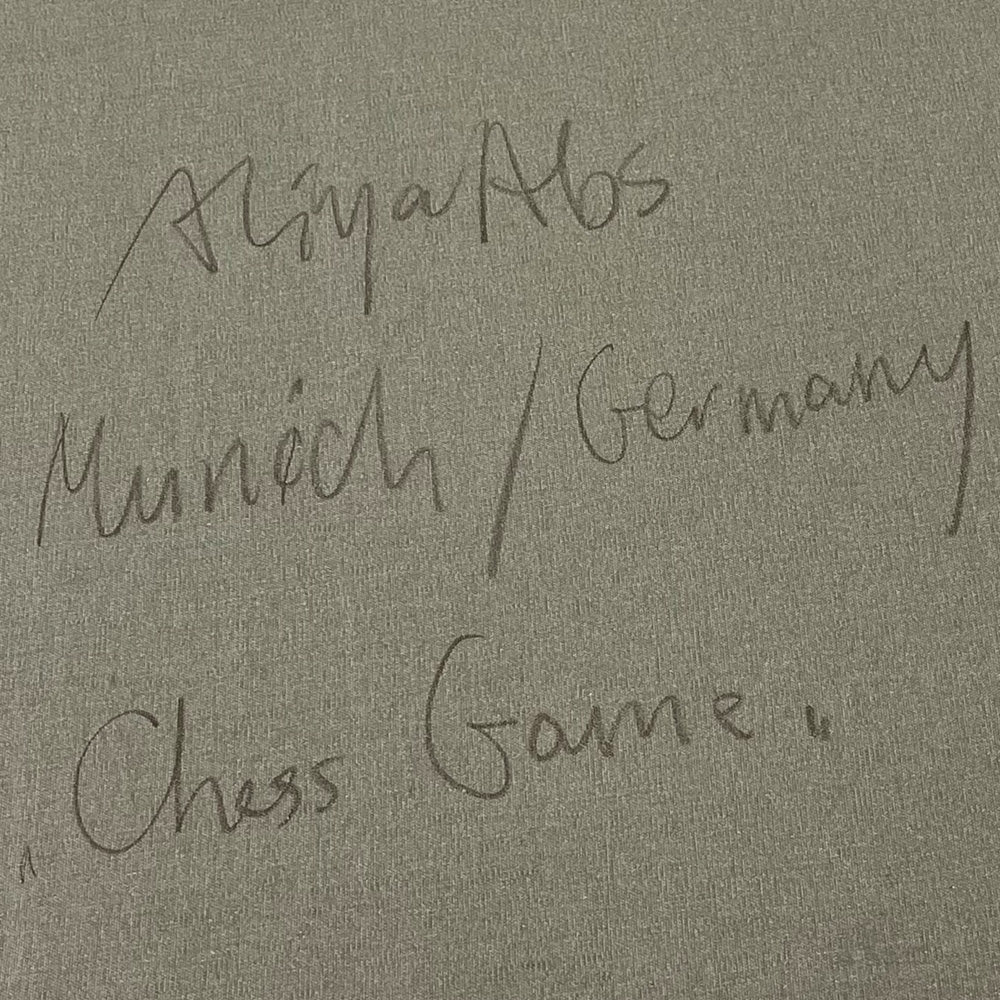 Aliya Abs
Munich / Germany
"Chess Game"